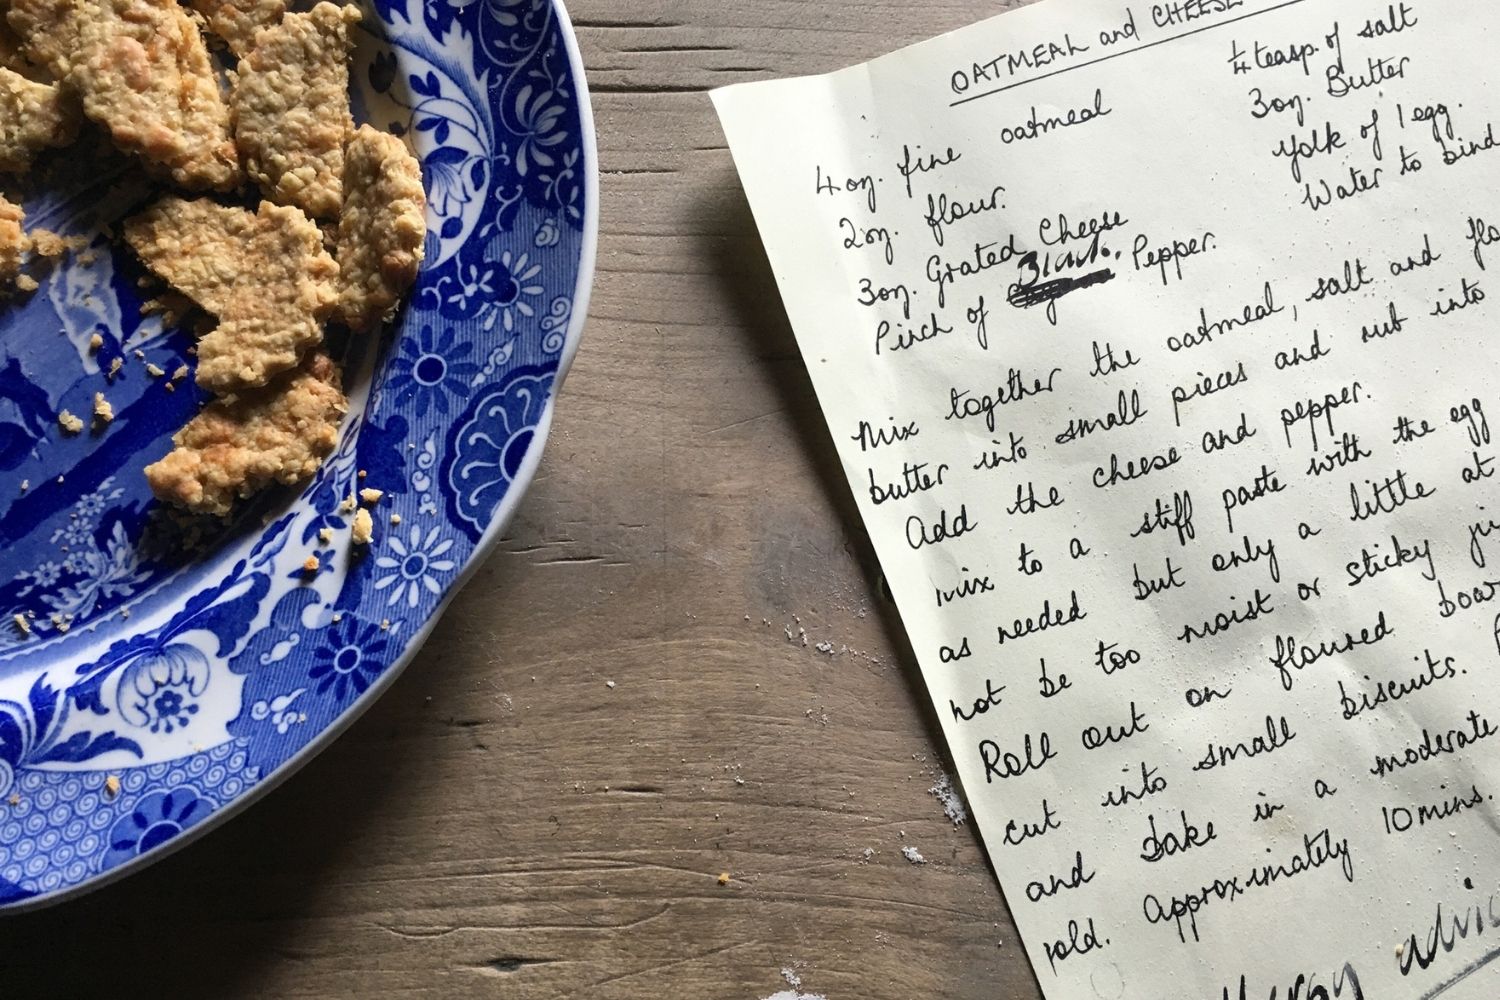 OATMEAL and CHEESE
4 oz. fine oatmeal
2 oz. flour.
3 oz. Grated Cheese
Pinch of Black Pepper.
¼ teasp. of salt
3 oz. Butter
Yolk of 1 egg.
Water to bind
Mix together the oatmeal, salt and
butter into small pieces and rub into
Add the cheese and pepper.
mix to a stiff paste with the egg
as needed but only a little at
not be too moist or sticky
Roll out on floured
cut into small biscuits.
and bake in a moderate
Approximately 10 mins.